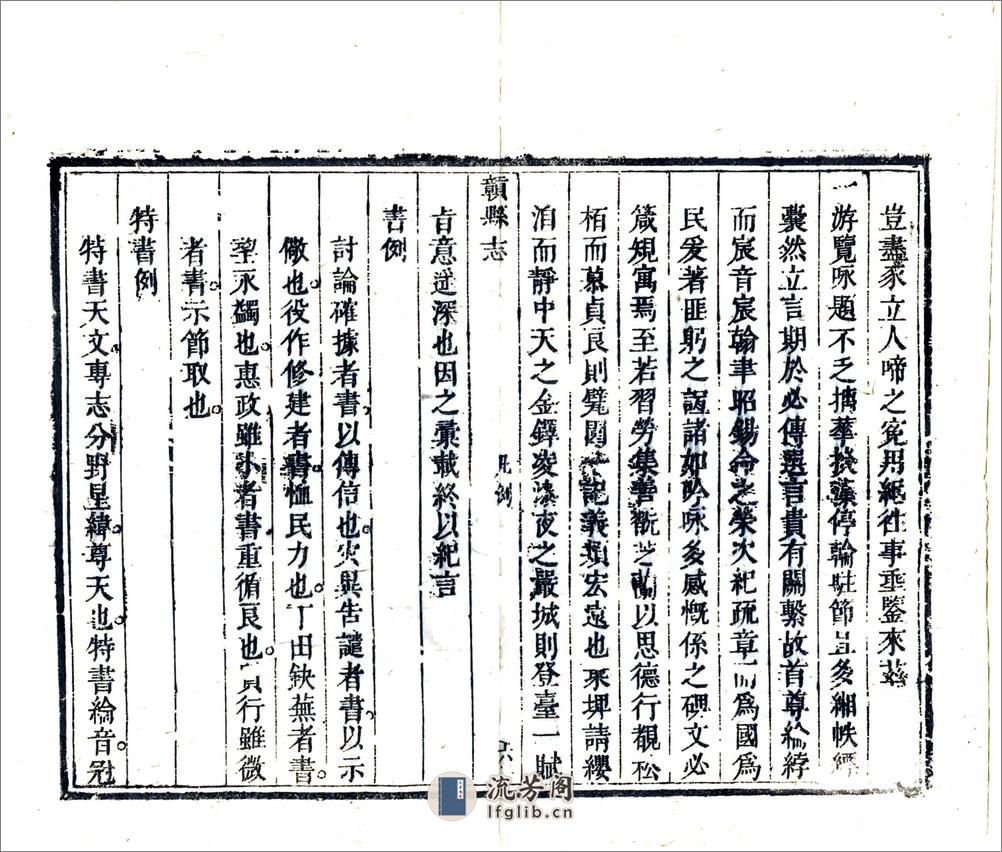 豈盡豕立人啼之寃用絕往事垂鑒來茲
一游覽咏題不乏摛華掞藻停輪駐節且多緗帙縹
囊然立言期於必傳選言貴有關繫故首尊綸綍
而宸音宸翰聿昭錫命之榮次紀疏章而為國為
民爰著匪躬之誼諸如吟咏多感慨係之碑文必
箴規寓焉至若習勞集善概芝蘭以思德行覩松
栢而慕貞良則甓園記義類宏遠也聚堁請纓
洎而靜中天之金鐸凌漆夜之嚴城則登臺一賦
贛縣志
凡例
六
㫖意逕深也因之彙載終以紀言
書例
討論確據者書以傳信也灾異告譴者書以示
儆也役作修建者書恤民力也丁田缺蕪者書
望永蠲也惠政雖小者書重循良也貞行雖微
者書示節取也
特書例
特書天文專志分野星緯尊天也特書綸音冠
流芳阁
lfglib.cn